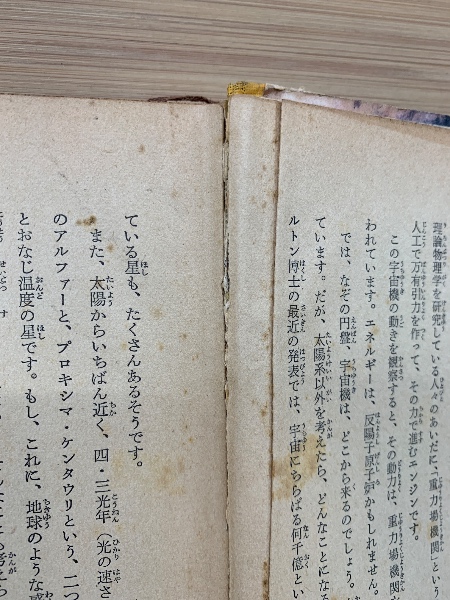 理論物理学を研究している人々のあいだに、重力場機関という
人工で万有引力を作って、その力で進むエンジンです。
この宇宙機の動きを観察すると、その動力は、重力場機関
われています。エネルギーは、反陽子原子炉かもしれません。
では、なぞの円盤、宇宙機は、どこから来るのでしょう。
ています。だが、太陽系以外を考えたら、どんなことになる
ルトン博士の最近の発表では、宇宙にちらばる何千億とい
ている星も、たくさんあるそうです。
また、太陽からいちばん近く、四・三光年（光の速さ
のアルファーと、プロキシマ・ケンタウリという、二つ
とおなじ温度の星です。もし、これに、地球のような